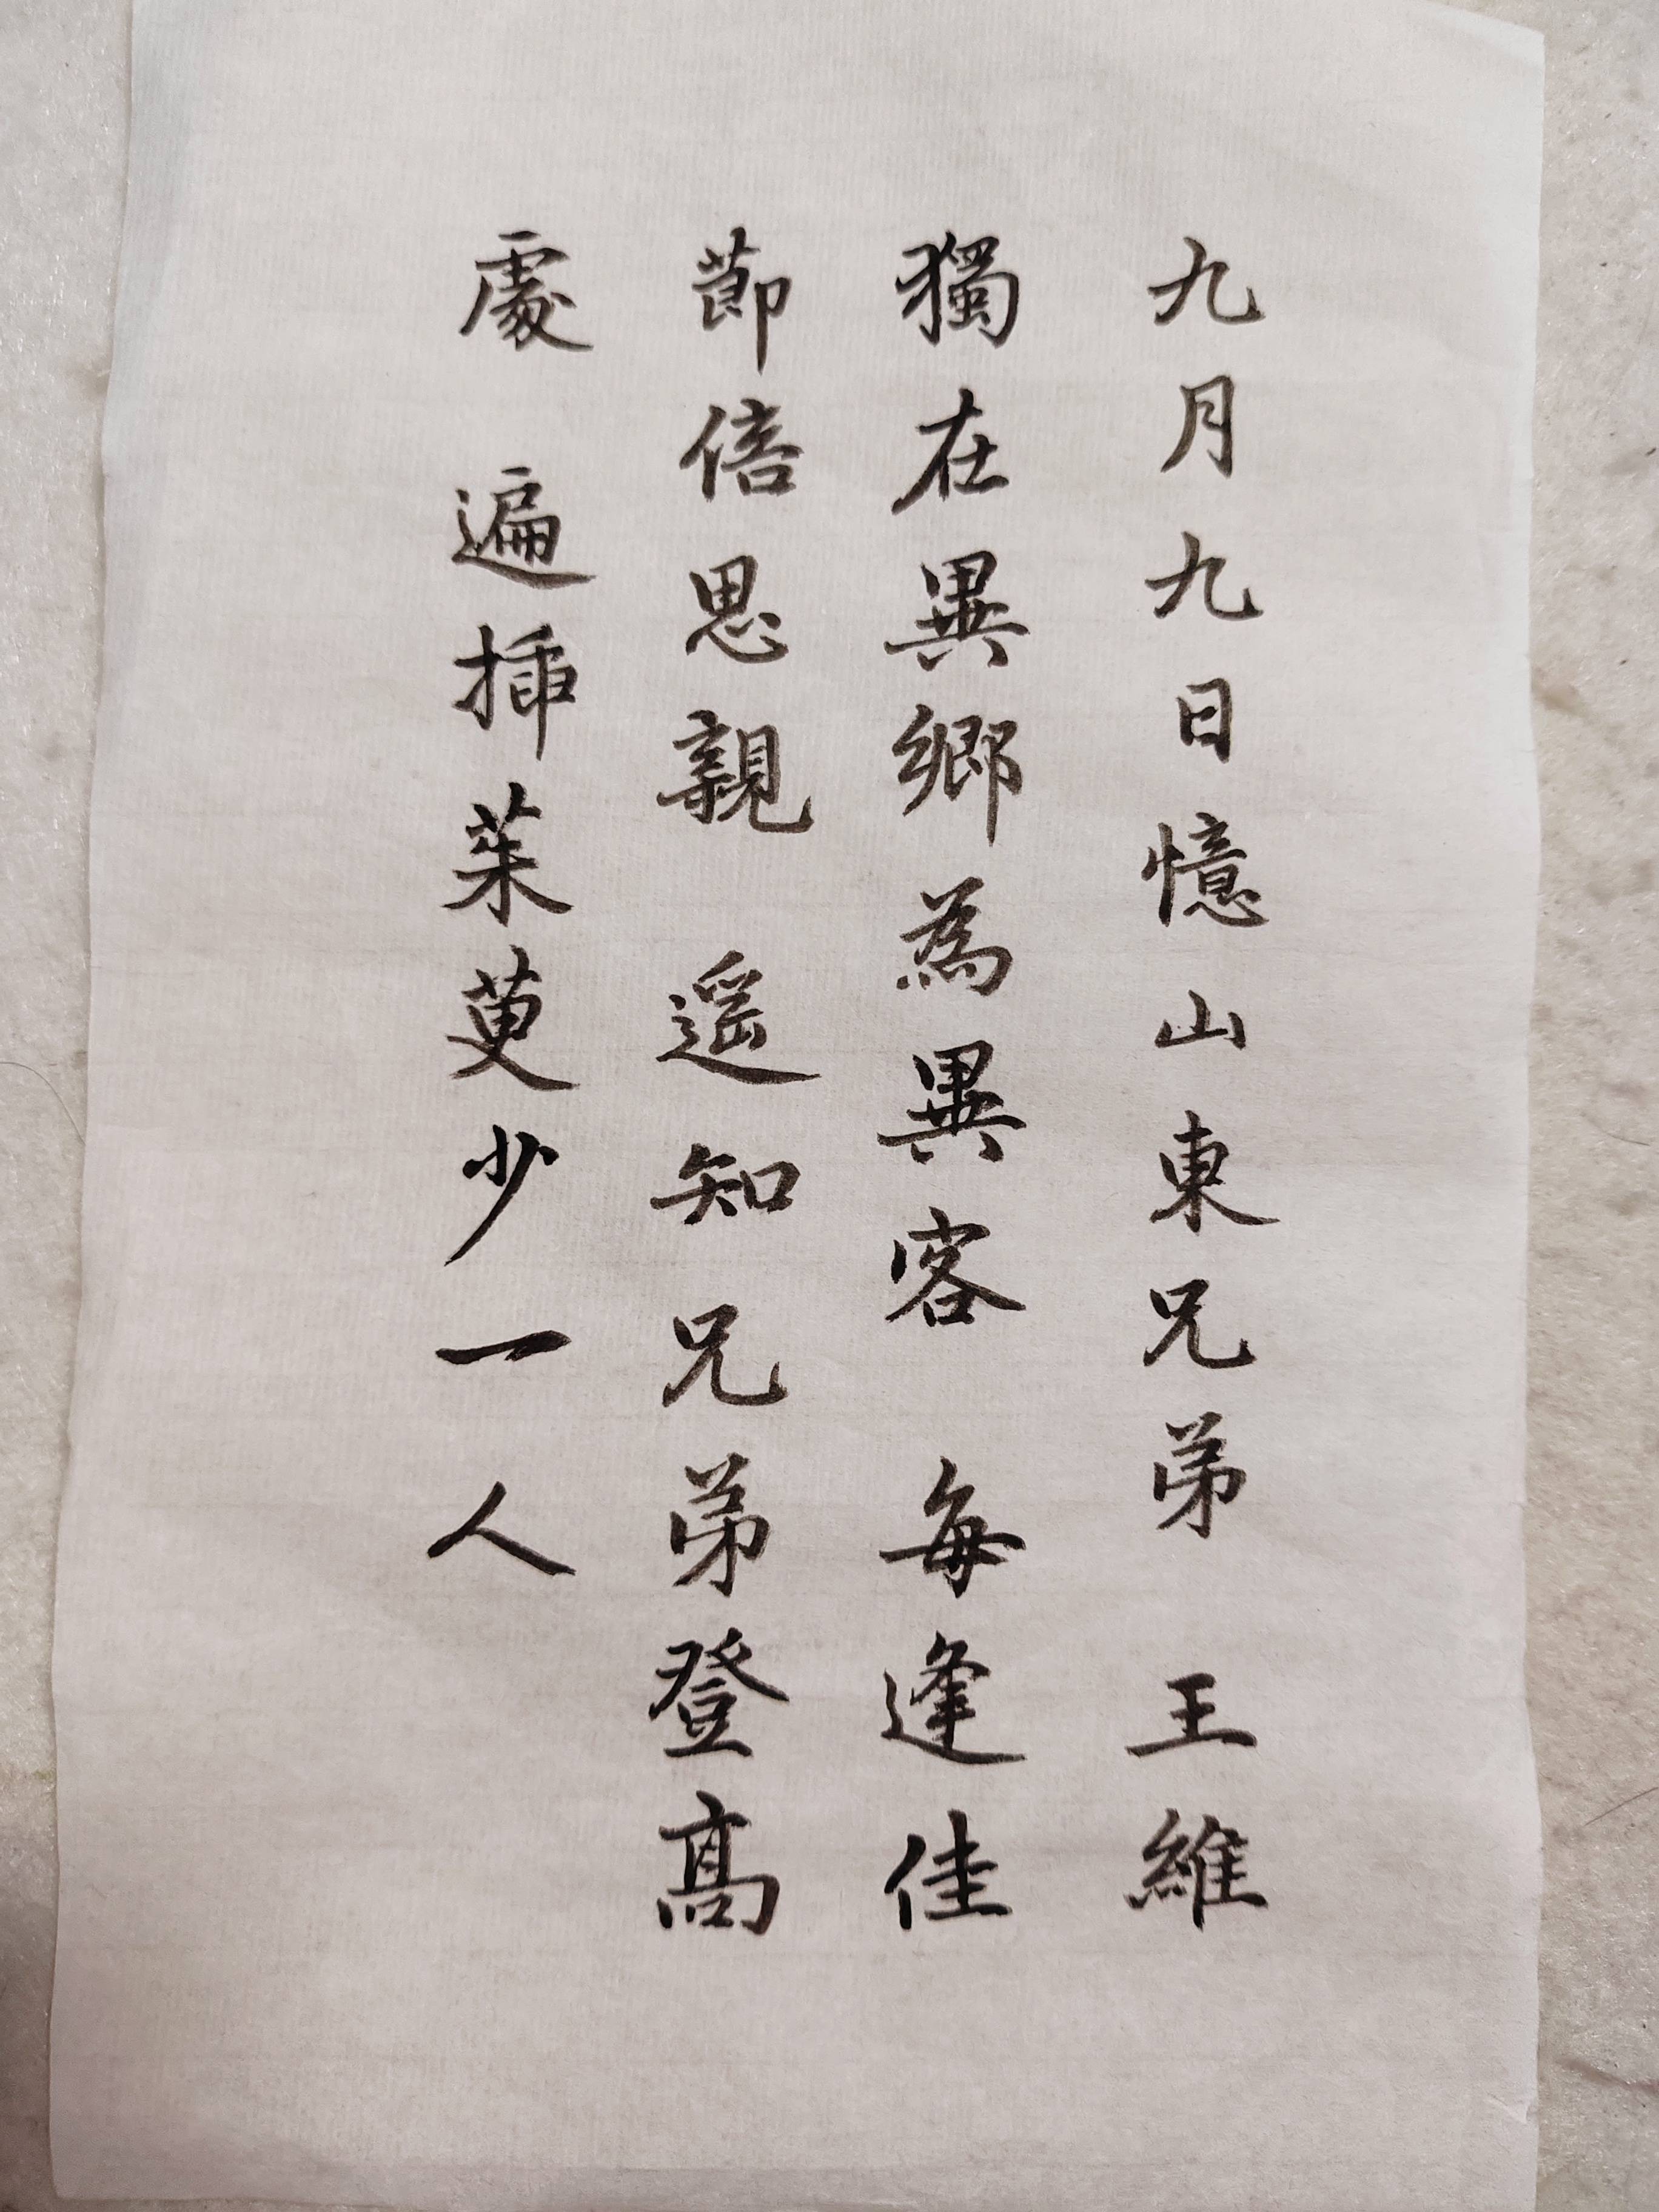 九月九日憶山東兄弟 王維
獨在異鄉為異客 每逢佳
節倍思親 遥知兄弟登高
處 遍插茱萸少一人